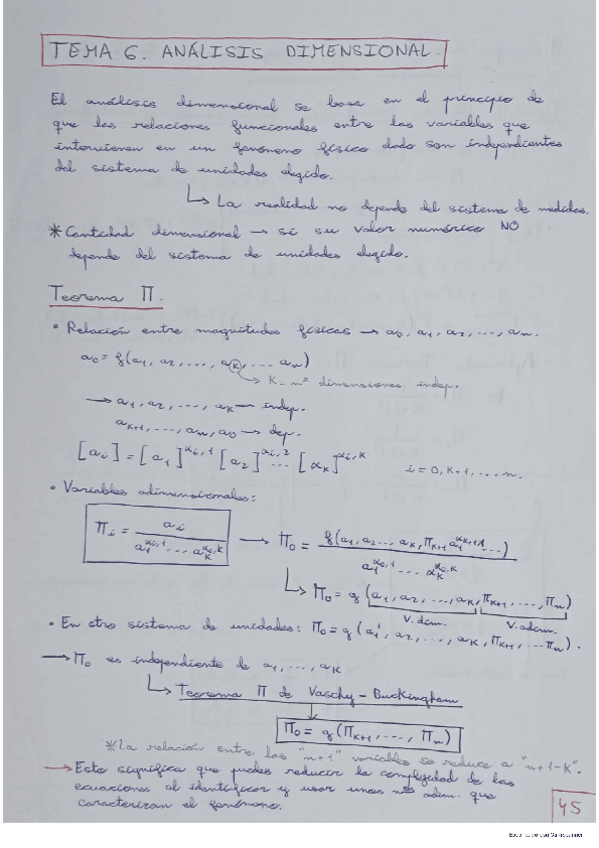 TEMA 6. ANÁLISIS DIMENSIONAL.
El análisis dimensional se basa en el principio de
que las relaciones funcionales entre las variables que
intervienen en un fenómeno físico dado son independientes
del sistema de unidades elegido.
↳ La realidad no depende del sistema de medidas.
* Cantidad dimensional → si su valor numérico NO
depende del sistema de unidades elegido.
Teorema Π.
• Relación entre magnitudes físicas → a₀, a₁, a₂, ..., aₙ.
a₀ = f(a₁, a₂, ..., aₖ, ... aₙ)
K - nº dimensiones indep.
→ a₁, a₂, ..., aₖ → indep.
aₖ₊₁, ..., aₙ, a₀ → dep.
[aᵢ] = [a₁]^αi,1 [a₂]^αi,2 ... [αₖ]^αi,k i = 0, k+1, ... n.
• Variables adimensionales:
Πᵢ = aᵢ / a₁^αi,1 ... aₖ^αi,k → Π₀ = f(a₁, a₂ ... aₖ, Πₖ₊₁ a₁^αk+1,1 ...) / a₁^α0,1 ... αₖ^α0,k
↳ Π₀ = g(a₁, a₂, ..., aₖ, Πₖ₊₁, ..., Πₙ)
V. dim. V. adim.
• En otro sistema de unidades: Π₀ = g(a₁', a₂, ..., aₖ, Πₖ₊₁ ... Πₙ).
→ Π₀ es independiente de a₁, ..., aₖ
↳ Teorema Π de Vaschy-Buckingham
Π₀ = g(Πₖ₊₁, ..., Πₙ)
* La relación entre las "n+1" variables se reduce a "n+1-K".
→ Esto significa que puedes reducir la complejidad de las
ecuaciones al identificar y usar unos nos adim. que
caracterizan el fenómeno.
45